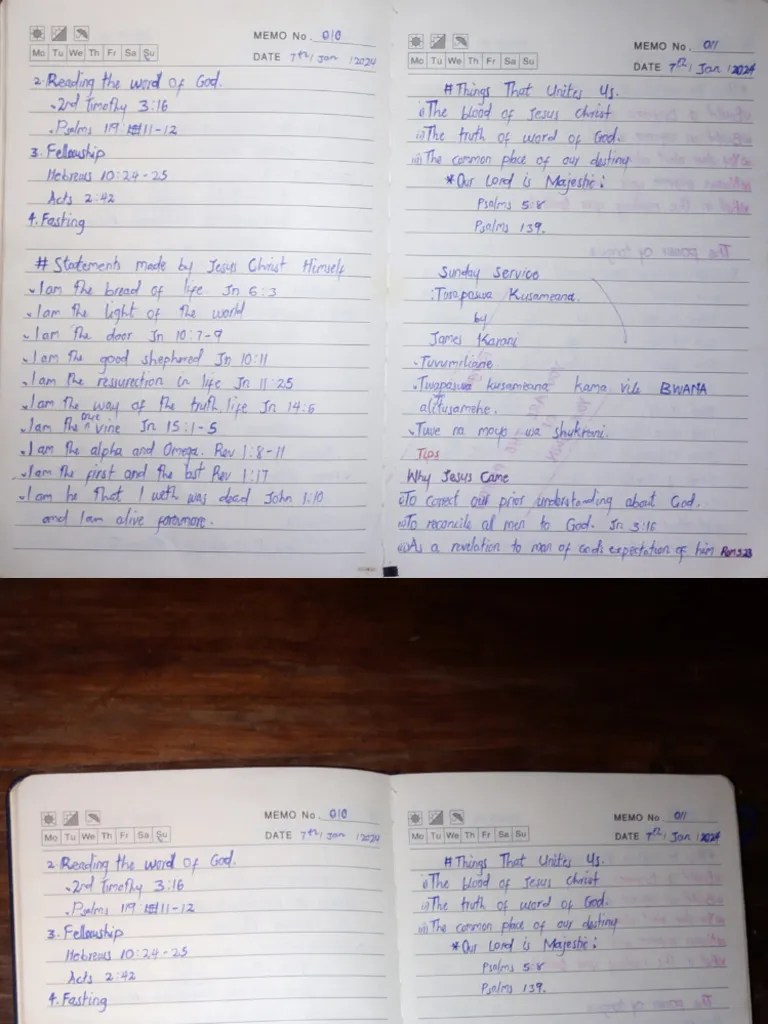 MEMO No. 010
Mo Tu We Th Fr Sa Su
DATE 7th / Jan / 2024
2. Reading the word of God.
2nd Timothy 3:16
Psalms 119 11-12
3. Fellowship
Hebrews 10:24-25
Acts 2:42
4. Fasting
# Statements made by Jesus Christ Himself
I am the bread of life Jn 6:3
I am the light of the world
I am the door Jn 10:7-9
I am the good shephered Jn 10:11
I am the resurection in life Jn 11:25
I am the way of the truth life Jn 14:6
I am the true vine Jn 15:1-5
I am the alpha and Omega. Rev 1:8-11
I am the first and the last Rev 1:17
I am he that I was dead John 1:10
and I am alive
MEMO No. 011
Mo Tu We Th Fr Sa Su
DATE 7th / Jan / 2024
# Things That Unites Us.
i) The blood of Jesus Christ
ii) The truth of word of God.
iii) The common place of our destiny
* Our Lord is Majestic:
Psalms 5:8
Psalms 139.
Sunday Service
:Tunapaswa Kusameana.
by
James Karani
Tuvumiliane
Twapaswa kusameana kama vile BWANA
alitusamehe.
Tuwe na moyo wa shukrani.
Tips
Why Jesus Came
i) To corect our prior understanding about God.
ii) To reconcile al men to God. Jn 3:16
iii) As a revelation to man of God's expectation of him Rom 3:23
MEMO No. 010
Mo Tu We Th Fr Sa Su
DATE 7th / Jan / 2024
2. Reading the word of God.
2nd Timothy 3:16
Psalms 119 11-12
3. Fellowship
Hebrews 10:24-25
Acts 2:42
4. Fasting
MEMO No. 011
Mo Tu We Th Fr Sa Su
DATE 7th / Jan / 2024
# Things That Unites Us.
i) The blood of Jesus Christ
ii) The truth of word of God.
iii) The common place of our destiny
* Our Lord is Majestic:
Psalms 5:8
Psalms 139.